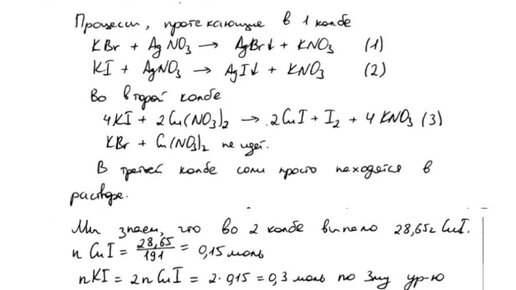 Процессы, протекающие в 1 колбе
KBr + AgNO₃ → AgBr↓ + KNO₃ (1)
KI + AgNO₃ → AgI↓ + KNO₃ (2)
Во второй колбе
4KI + 2Cu(NO₃)₂ → 2CuI + I₂ + 4KNO₃ (3)
KBr + Cu(NO₃)₂ не идет.
В третьей колбе соли просто находятся в
растворе.
Мы знаем, что во 2 колбе выпало 28,65г CuI.
n CuI = 28,65/191 = 0,15 моль
nKI = 2nCuI = 2·0,15 = 0,3 моль по 3му ур-ю